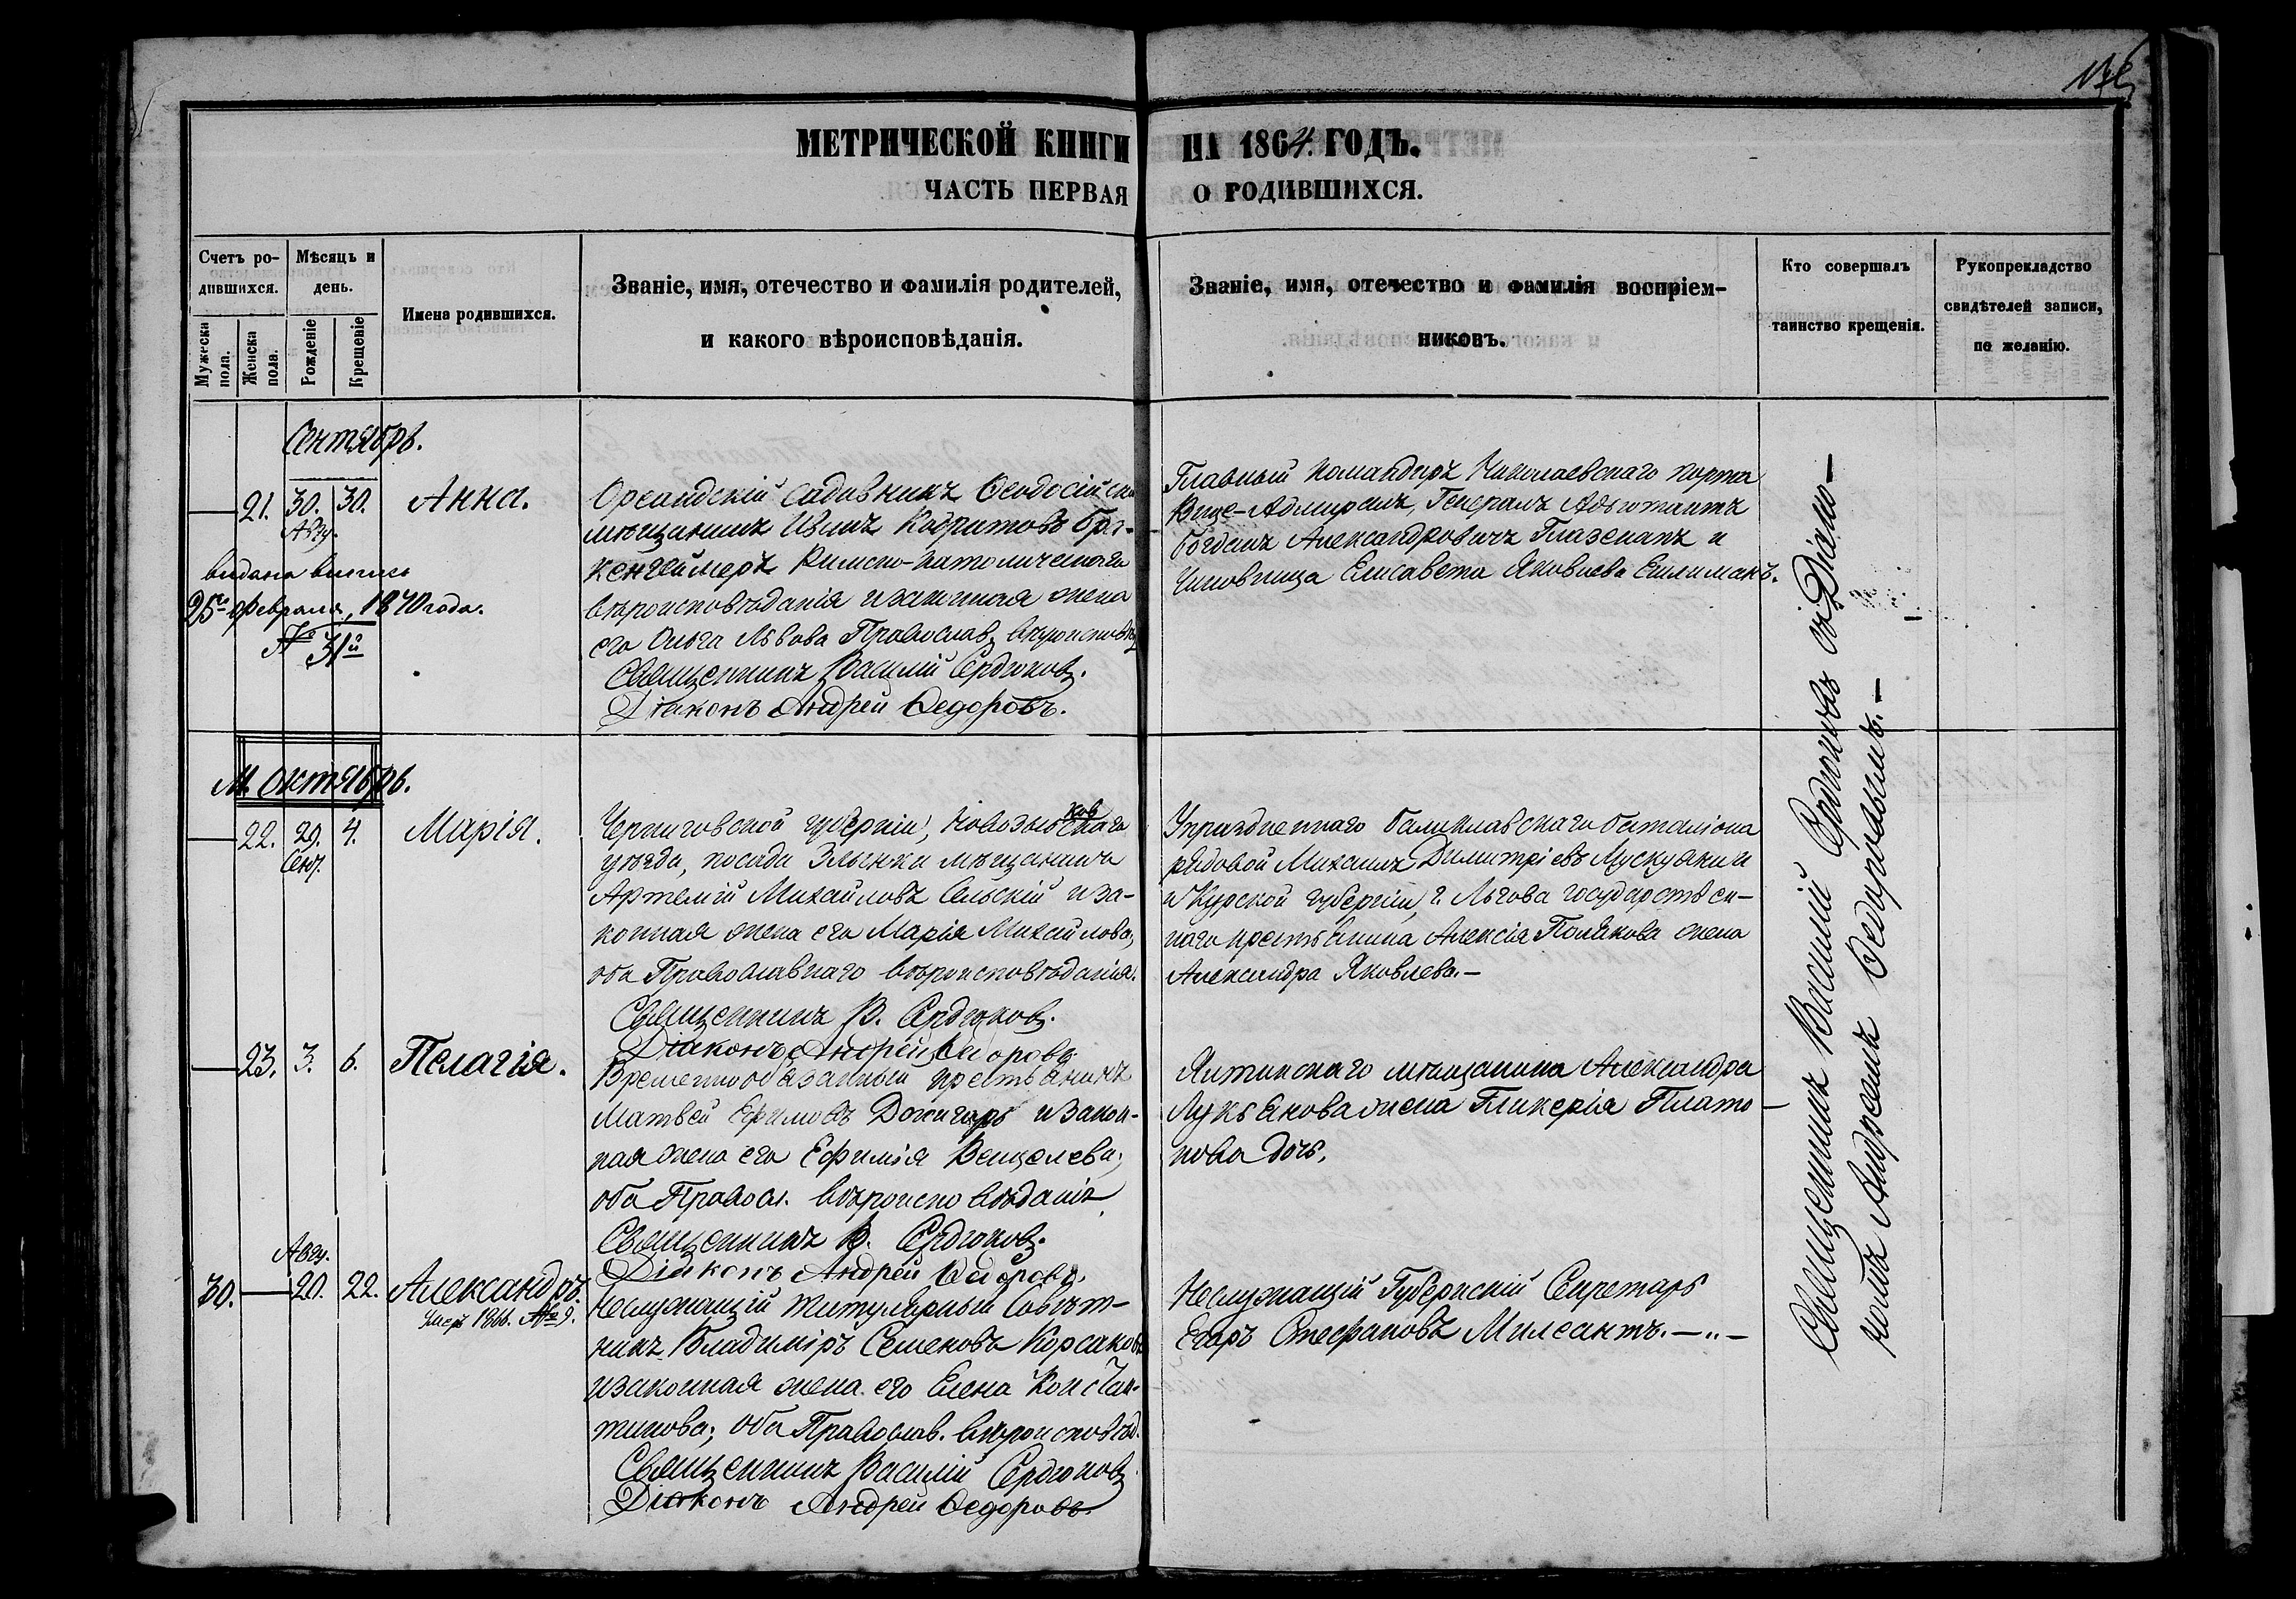 МЕТРИЧЕСКОЙ КНИГИ НА 1864 ГОДЪ.
ЧАСТЬ ПЕРВАЯ О РОДИВШИХСЯ.
Счетъ родившихся.
Мужеска пола.
Женска пола.
Мѣсяцъ и день.
Рожденіе
Крещеніе
Имена родившихся.
Званіе, имя, отечество и фамилія родителей,
и какого вѣроисповѣданія.
Званіе, имя, отечество и фамилія воспріем-
никовъ.
Кто совершалъ
таинство крещенія.
Рукоприкладство
свидѣтелей записи,
по желанію.
Сентябрь.
21. 30. 30. Анна.
Авгу.
выдана выпись
25го февраля, 1870 года.
№ 31й
Ореандскій садовникъ Ѳеодосійскій
мѣщанинъ Иванъ
Римско-католическаго
вѣроисповѣданія и законная жена
его Ольга Львова Православ. вѣроисповѣд.
Священникъ Василій Сердюковъ.
Діаконъ Андрей Ѳедоровъ.
Главный Командиръ Николаевскаго порта
Вице-Адмиралъ, Генералъ Адъютантъ
Богданъ Александровичъ Глазенапъ и
Чиновница Елисавета Яковлева
М. Октябрь.
22. 29. 4. Марія.
Сент.
Черниговской губерніи, Новозыбковскаго
уѣзда, посада Злынки мѣщанинъ
Артемій Михайловъ Сельскій и за-
конная жена его Марія Михайлова,
оба Православнаго вѣроисповѣданія.
Священникъ В. Сердюковъ.
Діаконъ Андрей Ѳедоровъ.
Упраздненнаго Балаклавскаго баталіона
рядовой Михаилъ Димитріевъ
и Курской губерніи, г. Льгова государствен-
наго крестьянина Алексія Полякова жена
Александра Яковлева.—
23. 3. 6. Пелагія.
Временнообязанный крестьянинъ
Матвей Ефимовъ и закон-
ная жена его Ефимія
оба Правосл. вѣроисповѣданія
Священникъ В. Сердюковъ.
Діаконъ Андрей Ѳедоровъ.
Ялтинскаго мѣщанина Александра
Лукьянова жена Гликерія Плато-
нова дочь.
Авгу.
30. 20. 22. Александръ.
Умеръ 1866.
Неслужащій Титулярный Совѣт-
никъ Владиміръ Семеновъ Корсаковъ
и законная жена его Елена Констан-
тинова; оба Православ. вѣроисповѣд.
Священникъ Василій Сердюковъ
Діаконъ Андрей Ѳедоровъ
Неслужащій Губернскій Секретарь
Егоръ Стефановъ Милеантъ.—"—
Священникъ Василій Сердюковъ съ Діако-
номъ Андреемъ Ѳедоровымъ.—